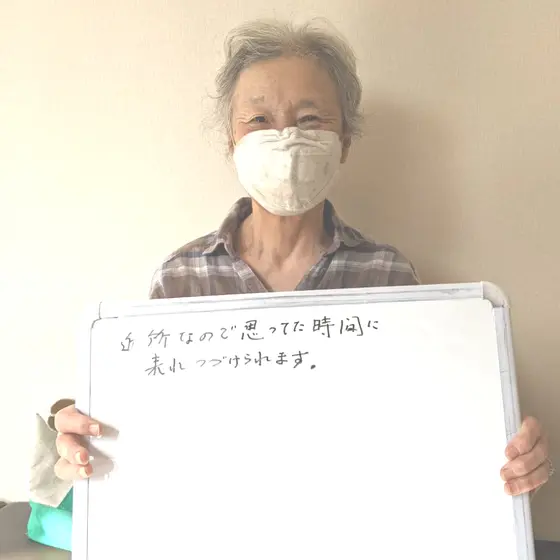 近所なので思ってた時間に
来れつづけられます。